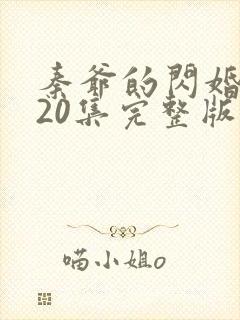 秦爷的閃婚
20集完整版
喵小姐o